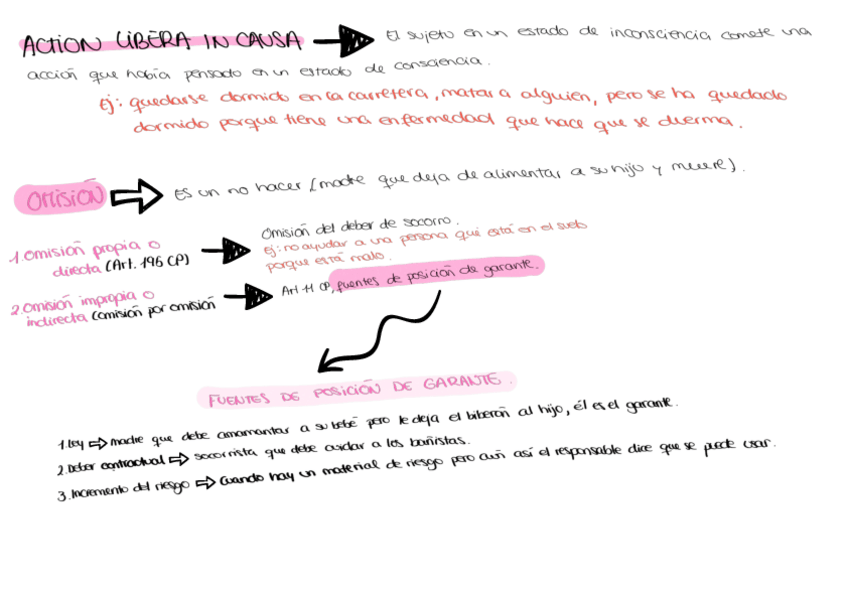 ACTION LIBERA IN CAUSA El sujeto en un estado de inconsciencia comete una
acción que había pensado en un estado de consciencia.
Ej: quedarse dormido en la carretera, matar a alguien, pero se ha quedado
dormido porque tiene una enfermedad que hace que se duerma.
OMISIÓN Es un no hacer (madre que deja de alimentar a su hijo y muere).
1. Omisión propia o
directa (Art. 196 CP)
Omisión del deber de socorro.
ej: no ayudar a una persona que está en el suelo
porque está malo.
2. Omisión impropia o
indirecta (comisión por omisión
Art 11 CP, fuentes de posición de garante.
FUENTES DE POSICIÓN DE GARANTE.
1. Ley madre que debe amamantar a su bebé pero le deja el biberón al hijo, él es el garante.
2. Deber contractual socorrista que debe cuidar a los bañistas.
3. Incremento del riesgo Cuando hay un material de riesgo pero aún así el responsable dice que se puede usar.